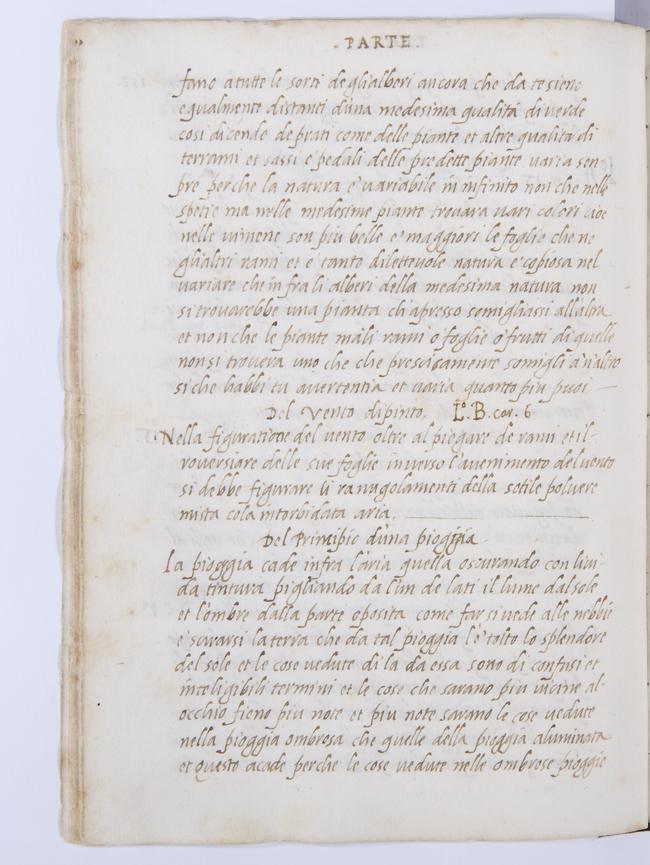 . PARTE .
fano a tutte le sorti de gli alberi ancora che da te sieno
egualmente distanti d'una medesima qualità di verde
cosi dicendo de prati come delle piante et altre qualita di
terrami et sassi e pedali delle predette piante varia sen
pre perche la natura e variabile in infinito non che nelle
spetie ma nelle medesime piante trovara vari colori cioe
nelle vimene son piu belle e maggiori le foglie che ne
gli altri rami et è tanto dilettevole natura e copiosa nel
variare che in fra li alberi della medesima natura non
si trovarebbe una pianta ch apresso semigliassi all'altra
et non che le piante ma li rami o foglie o frutti di quelle
non si trovera uno che che prescisamente somigli a n'altro
si che habbi tu avertentia et varia quanto piu puoi
Del Vento dipinto. Lo. B. car. 6
Nella figuratione del vento oltre al piegare de rami et il-
roversiare delle sue foglie inverso l'avenimento del vento
si debbe figurare li ranugolamenti della sotile polvere
mista cola intorbidata aria.
Del Principio d'una pioggia
La pioggia cade infra l'aria quella oscurando con livi-
da tintura pigliando da l'un de lati il lume dal sole
et l'ombre dalla parte oposita come far si vede alle nebbie
e scurarsi la terra che da tal pioggia l'e tolto lo splendore
del sole et le cose vedute di la da essa sono di confusi et
inteligibili termini et le cose che sarano piu vicine al-
occhio fieno piu note et piu note sarano le cose vedute
nella pioggia ombrosa che quelle della pioggia aluminata
et questo acade perche le cose vedute nelle ombrose pioggie